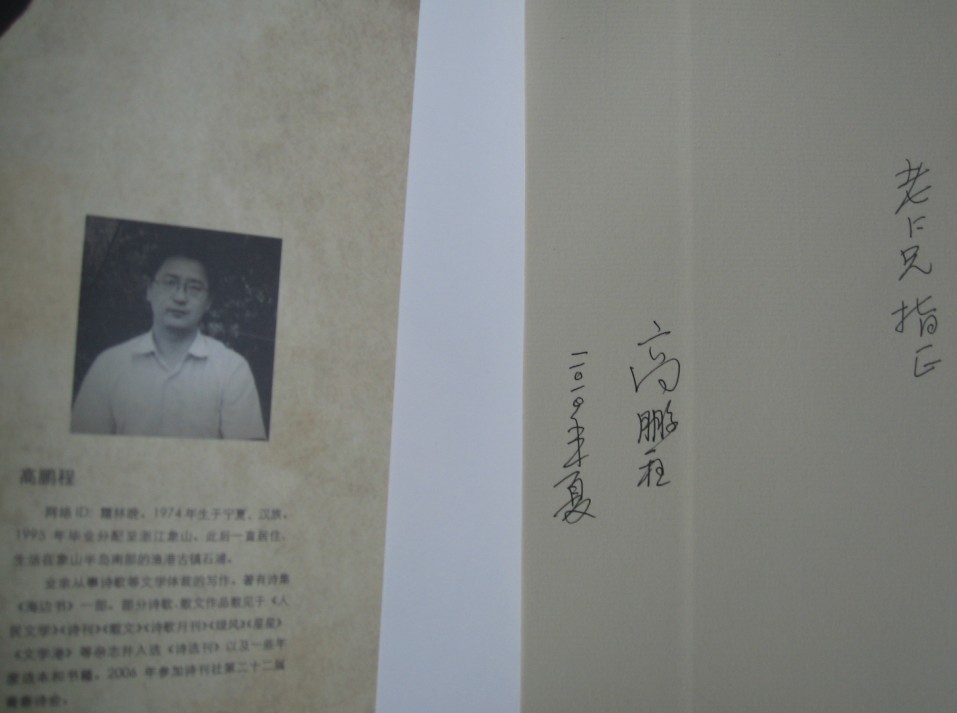 高鹏程
网络 ID: 1974 年生于宁夏，汉族。
1995 年毕业分配至浙江象山。此后一直居住、
生活在象山半岛南部的渔港古镇石浦。
业余从事诗歌等文学体裁的写作。著有诗集
《海边书》一部。部分诗歌、散文作品散见于《人
民文学》《诗刊》《散文》《诗歌月刊》《绿风》《星星》
《文学港》等杂志并入选《诗选刊》以及一些年
度选本和书籍。2006 年参加诗刊社第二十二届
青春诗会。
兄 指正
高鹏程
二〇一〇年夏